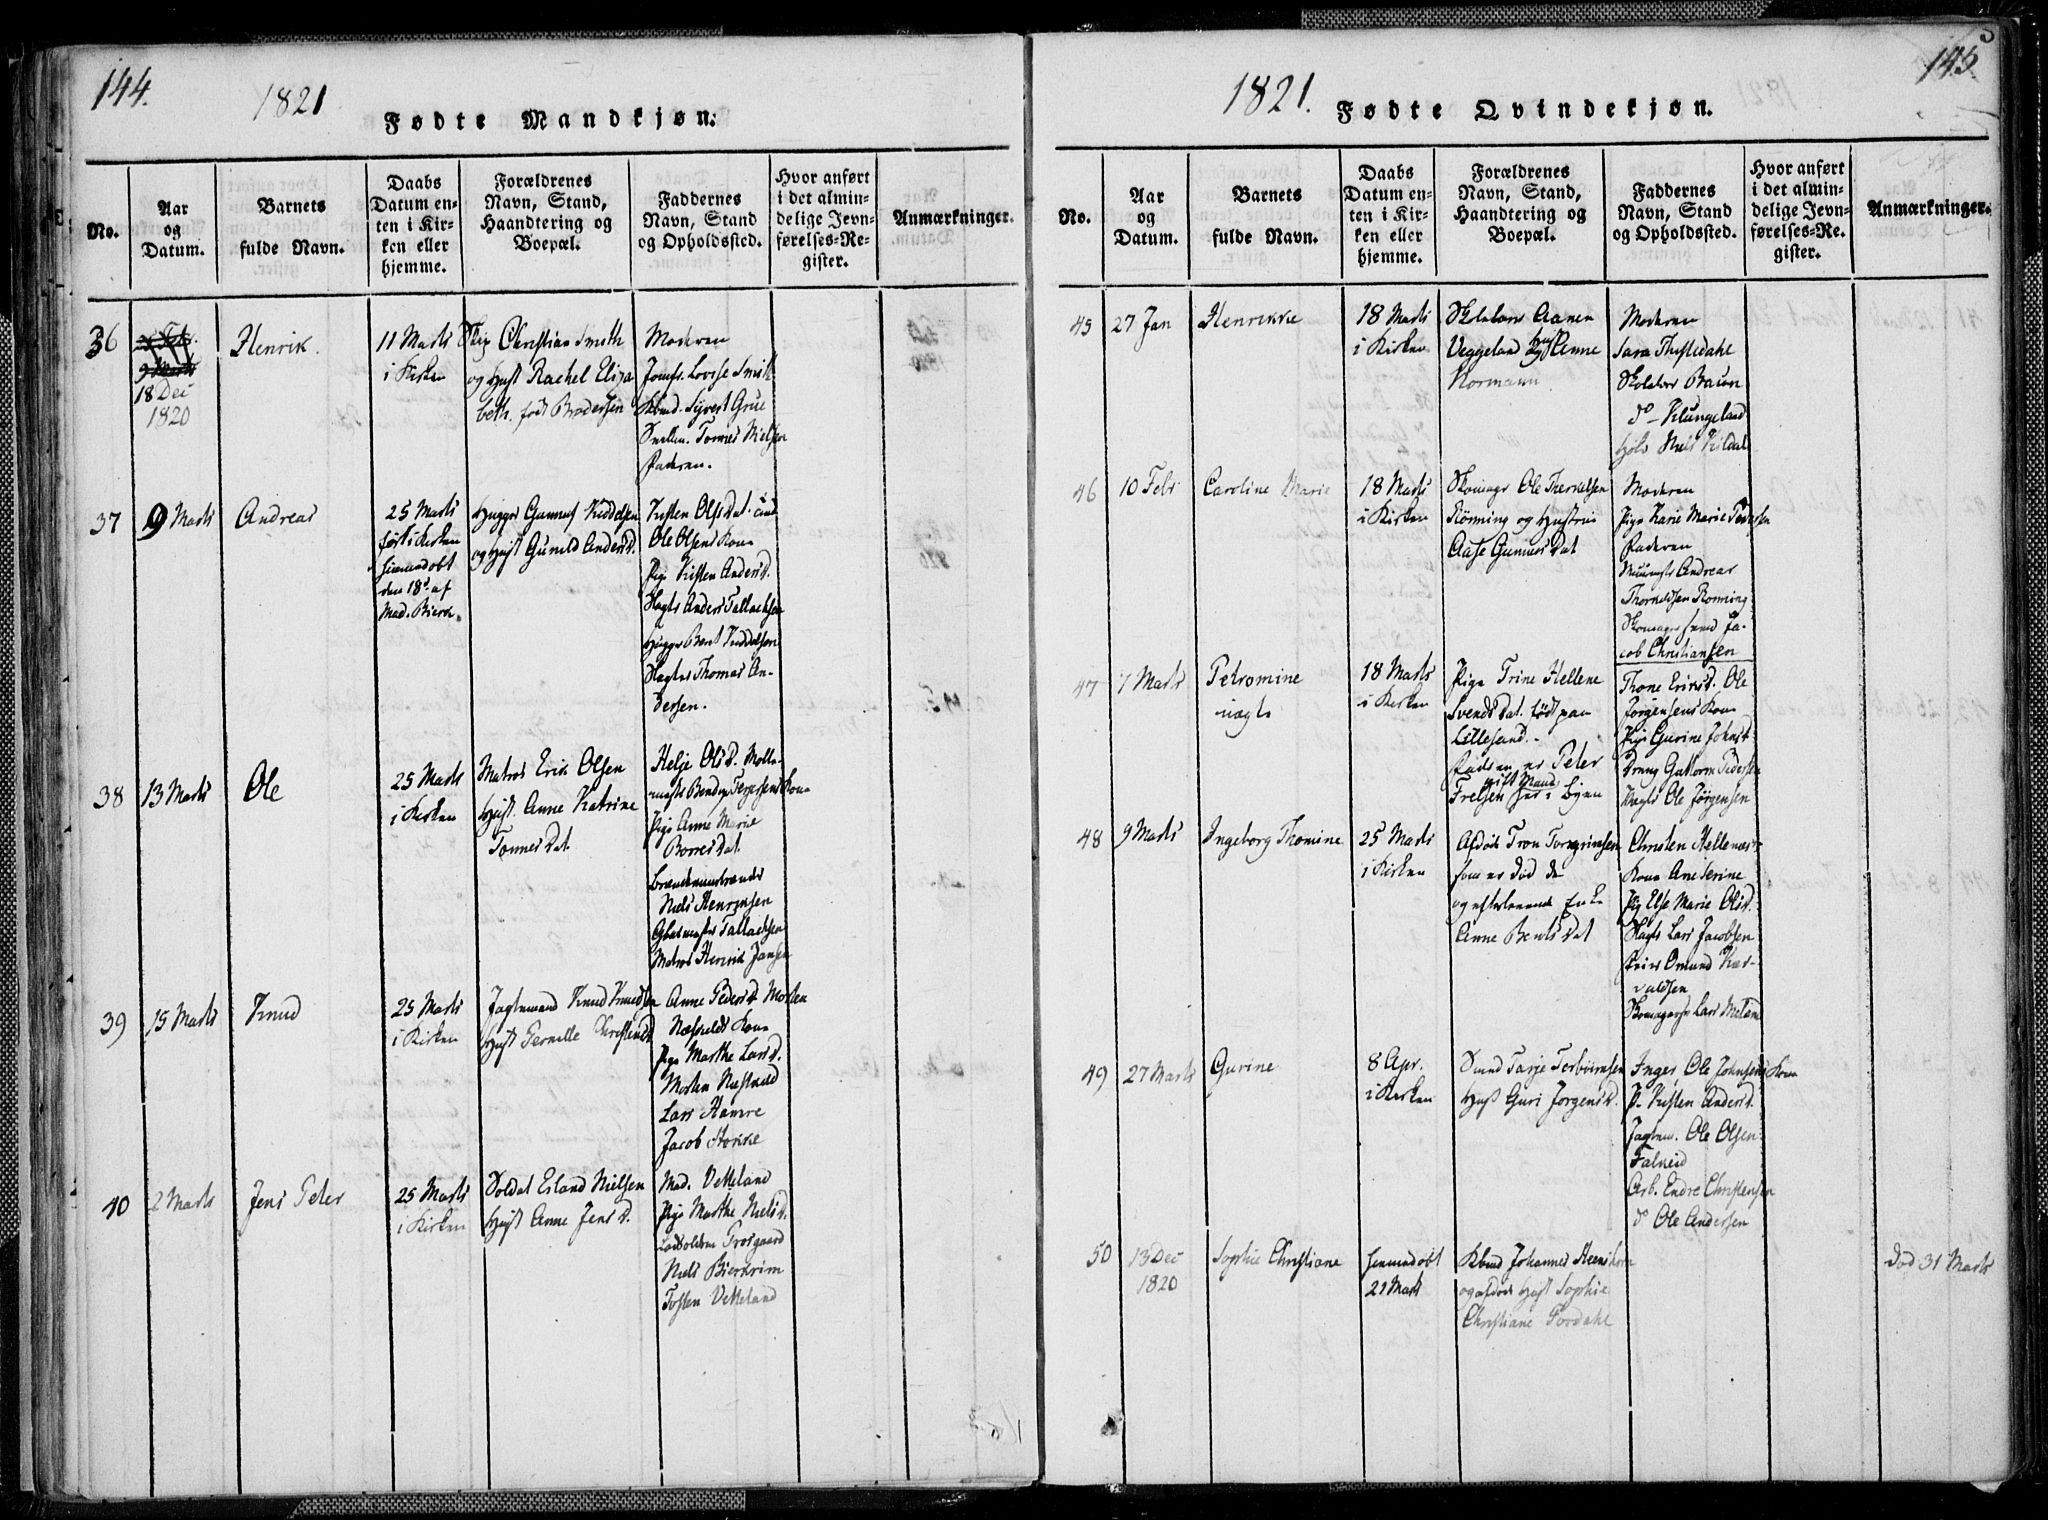 144.
1821
Fødte Mandkjøn:
No.
Aar
og
Datum.
Barnets
fulde Navn.
Daabs
Datum en-
ten i Kir-
ken eller
hjemme.
Forældrenes
Navn, Stand,
Haandtering og
Boepæl.
Faddernes
Navn, Stand
og Opholdssted.
Hvor anført
i det almin-
delige Jevn-
førelses-Re-
gister.
Anmærkninger.
36
18 Dec
1820
Henrik.
11 Marts
i Kirken
Skip Christian Smith
og Hust Rachel Eliza
beth. født Brodersen
Moderen
Jomfr. Lovise Smith
Kbmd. Sivert Grue
Tønnes Nielsen
Faderen.
37
9 Marts
Andreas
25 Marts
først i Kirken
hiemmedøbt
den 18d af
Mad. Bierk.
Hugger Gunnuf Kiddelsen
og Hust Gunild Andersd.
Kisten OlsDat.
Ole Olsens Kone
Pige Kisten Andersd.
Anders Tallachsen
Hugger Bent Kiddelsen
Thomas An-
dersen.
38
13 Marts
Ole
25 Marts
i Kirken
Matros Erik Olsen
Hust. Anne Katrine
TønnesDat.
Helje Olsd.
Pige Anne Marie
BorresDat.
Niels Henriksen
Tallachsen
Matros Henrik Jansen
39
15 Marts
Knud
25 Marts
i Kirken
Jagtemand Knud Knudsen
Hust Pernille Christensd.
Anne Pedersd. Morten
Kone
Pige Marthe Larsd.
Morten
Lars Hamre
Jacob Stokke
40
2 Marts
Jens Peter
25 Marts
i Kirken
Soldat Erland Nielsen
Hust Anne Jensd.
Mad. Vetteland
Pige Marthe Nielsd.
Niels Bierkrim
Tosten Vetteland
145
1821.
Fødte Qvindekjøn.
No.
Aar
og
Datum.
Barnets
fulde Navn.
Daabs
Datum en-
ten i Kir-
ken eller
hjemme.
Forældrenes
Navn, Stand,
Haandtering og
Boepæl.
Faddernes
Navn, Stand
og Opholdssted.
Hvor anført
i det almin-
delige Jevn-
førelses-Re-
gister.
Anmærkninger.
45
27 Jan
Henrikke
18 Marts
i Kirken
Skolelærer Aanen
Veggeland og Hust Anne
Normann
Moderen
Sara Thistedahl
Skolelærer
do - Klungeland
Niels Kildal
46
10 Febr
Caroline Marie
18 Marts
i Kirken
Skomager Ole Therkelsen
Rönning og Hustrue
Aase GunnersDat
Moderen
Pige Karie Marie Pedersen
Faderen
Andreas
Thorkelsen Ronning
Skomager Ja-
cob Christiansen
47
7 Marts
Petromine
uægte
18 Marts
i Kirken
Pige Trine Hellene
SvendsDat. født paa
Lillesand.
Faderen er Peter
Frelsen gift Mand her i Byen
Thone Eriksd. Ole
Jørgensens Kone
Pige Gurine Johnsd.
Dreng Guttorm Pedersen
Ole Jørgensen
48
9 Marts
Ingeborg Thomine
25 Marts
i Kirken
Afdøde Tron Torgrimsen
som er død
og efterlevende Enke
Anne BentsDat
Christen Hellenæs
Kone Ane Serine
Pig Else Marie Olsd.
Lars Jacobsen
Omund
valdsen
Lars
49
27 Marts
Gurine
8 Apr.
i Kirken
Smed Tarje Torbiørnsen
Hust Guri Jørgensd.
Inger Ole Johnsens Kone
P- Kisten Andersd.
Jagtem. Ole Olsen
Falkeid
Arb. Endre Christensen
do Ole Andersen
50
13 Dec
1820
Sophie Christiane
hiemmedøbt
21 Marts
Kbmd Johannes Heenskorn
og afdøde Hust Sophie
Christiane Tordahl
død 31 Marts